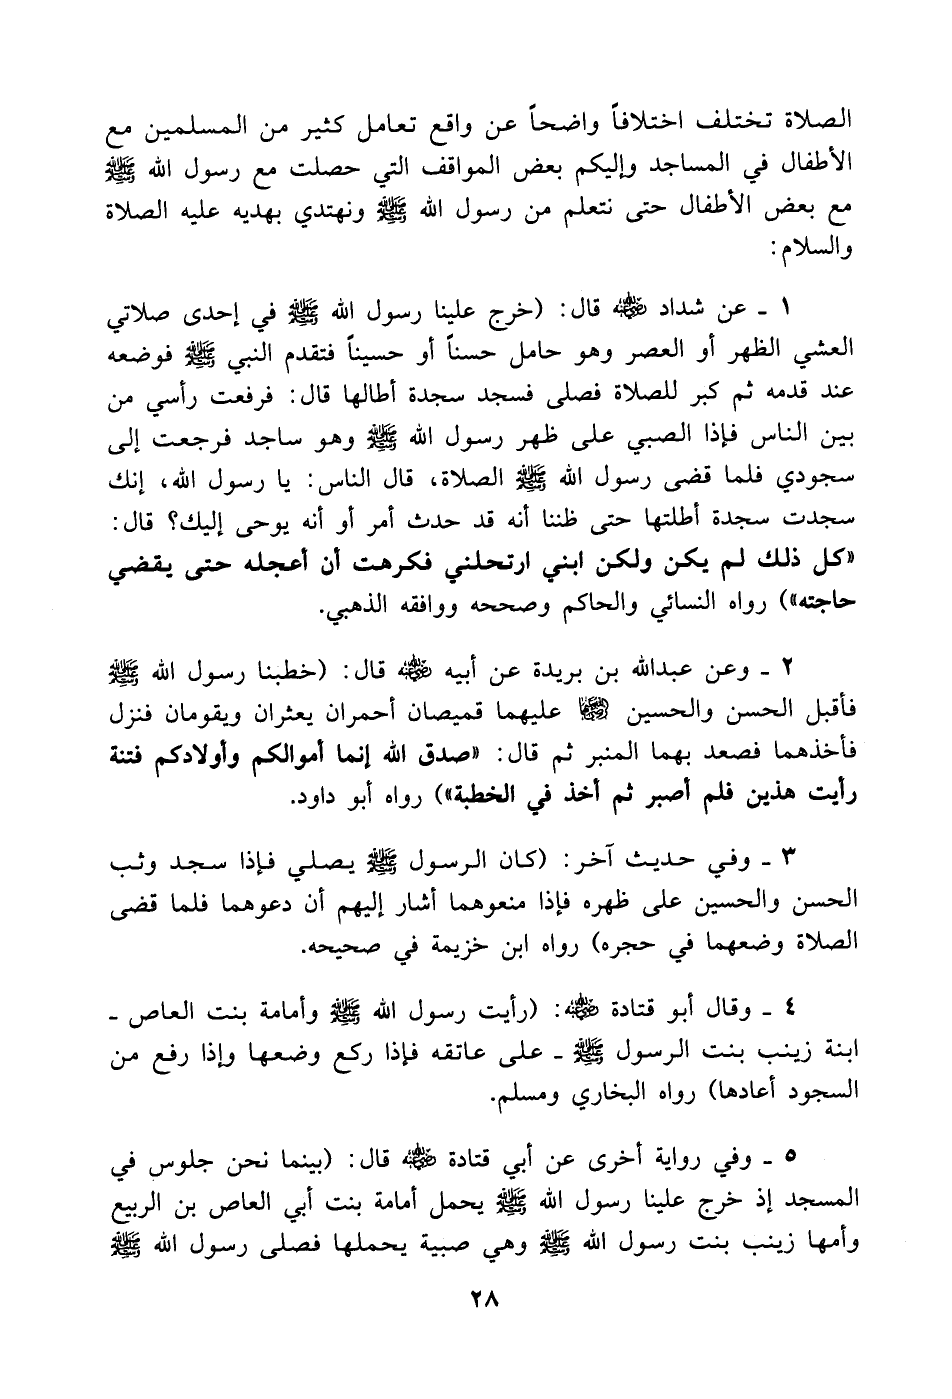 الصلاة تختلف اختلافاً واضحاً عن واقع تعامل كثير من المسلمين مع
الأطفال في المساجد وإليكم بعض المواقف التي حصلت مع رسول الله ﷺ
مع بعض الأطفال حتى نتعلم من رسول الله ﷺ ونهتدي بهديه عليه الصلاة
والسلام:
١ ـ عن شداد رضي الله عنه قال: (خرج علينا رسول الله ﷺ في إحدى صلاتي
العشي الظهر أو العصر وهو حامل حسناً أو حسيناً فتقدم النبي ﷺ فوضعه
عند قدمه ثم كبر للصلاة فصلى فسجد سجدة أطالها قال: فرفعت رأسي من
بين الناس فإذا الصبي على ظهر رسول الله ﷺ وهو ساجد فرجعت إلى
سجودي فلما قضى رسول الله ﷺ الصلاة، قال الناس: يا رسول الله، إنك
سجدت سجدة أطلتها حتى ظننا أنه قد حدث أمر أو أنه يوحى إليك؟ قال:
«كل ذلك لم يكن ولكن ابني ارتحلني فكرهت أن أعجله حتى يقضي
حاجته») رواه النسائي والحاكم وصححه ووافقه الذهبي.
٢ ـ وعن عبدالله بن بريدة عن أبيه رضي الله عنه قال: (خطبنا رسول الله ﷺ
فأقبل الحسن والحسين رضي الله عنهما عليهما قميصان أحمران يعثران ويقومان فنزل
فأخذهما فصعد بهما المنبر ثم قال: «صدق الله إنما أموالكم وأولادكم فتنة
رأيت هذين فلم أصبر ثم أخذ في الخطبة») رواه أبو داود.
٣ ـ وفي حديث آخر: (كان الرسول ﷺ يصلي فإذا سجد وثب
الحسن والحسين على ظهره فإذا منعوهما أشار إليهم أن دعوهما فلما قضى
الصلاة وضعهما في حجره) رواه ابن خزيمة في صحيحه.
٤ ـ وقال أبو قتادة رضي الله عنه: (رأيت رسول الله ﷺ وأمامة بنت العاص ـ
ابنة زينب بنت الرسول ﷺ ـ على عاتقه فإذا ركع وضعها وإذا رفع من
السجود أعادها) رواه البخاري ومسلم.
٥ ـ وفي رواية أخرى عن أبي قتادة رضي الله عنه قال: (بينما نحن جلوس في
المسجد إذ خرج علينا رسول الله ﷺ يحمل أمامة بنت أبي العاص بن الربيع
وأمها زينب بنت رسول الله ﷺ وهي صبية يحملها فصلى رسول الله ﷺ
٢٨